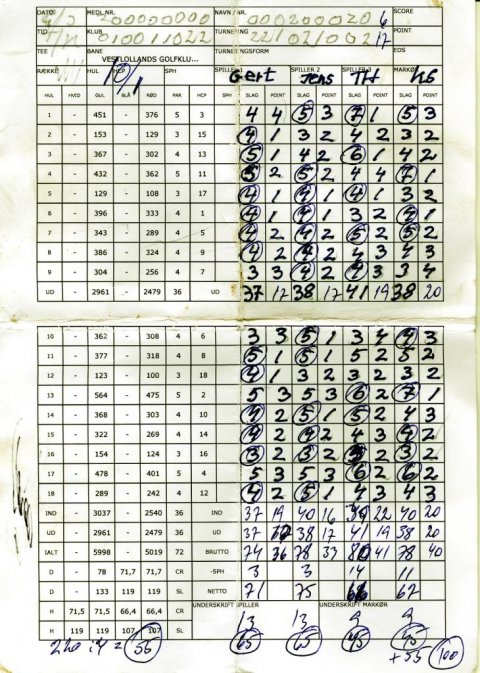 DATO MEDL.NR. NAVN / NR. SCORE
200000000 000200020 6
TID KLUB TURNERING POINT
010011022 221021002 17
TEE BANE TURNERINGSFORM EDS
VESTLOLLANDS GOLFKLU...
RÆKKE HUL HCP SPH SPILLER 1 SPILLER 2 SPILLER 3 MARKØR
10/1 Gert Jens
HUL HVID GUL BLÅ RØD PAR HCP SPH SLAG POINT SLAG POINT SLAG POINT SLAG POINT
1 - 451 - 376 5 3 4 4 5 3 7 1 5 3
2 - 153 - 129 3 15 4 1 3 2 4 2 3 2
3 - 367 - 302 4 13 5 1 4 2 6 1 4 2
4 - 432 - 362 5 11 5 2 5 2 4 4 7 1
5 - 129 - 108 3 17 4 1 4 1 4 1 3 2
6 - 396 - 333 4 1 4 1 4 1 3 2 4 1
7 - 343 - 289 4 5 4 2 4 2 5 2 5 2
8 - 386 - 324 4 9 4 2 4 2 4 3 4 3
9 - 304 - 256 4 7 3 3 4 2 4 3 3 4
UD - 2961 - 2479 36 UD 37 17 38 17 41 19 38 20
10 - 362 - 308 4 6 3 3 5 1 3 4 4 3
11 - 377 - 318 4 8 5 1 5 1 5 2 5 2
12 - 123 - 100 3 18 4 1 3 2 3 2 3 2
13 - 564 - 475 5 2 5 3 5 3 6 2 7 1
14 - 368 - 303 4 10 4 2 5 1 5 2 4 3
15 - 322 - 269 4 14 4 2 4 2 4 3 4 2
16 - 154 - 124 3 16 3 2 3 2 3 2 3 2
17 - 478 - 401 5 4 5 3 5 3 6 2 6 2
18 - 289 - 242 4 12 4 2 5 1 4 3 4 3
IND - 3037 - 2540 36 IND 37 19 40 16 22 40 20
UD - 2961 - 2479 36 UD 37 38 17 41 19 38 20
IALT - 5998 - 5019 72 BRUTTO 74 36 78 33 80 41 78 40
D - 78 71,7 71,7 CR -SPH 3 3 14 11
D - 133 119 119 SL NETTO 71 75 66 67
H 71,5 71,5 66,4 66,4 CR UNDERSKRIFT SPILLER UNDERSKRIFT MARKØR
13 13 9 9
H 119 119 107 107 SL 65 65 45 45
220 : 4 = 55 +55 100